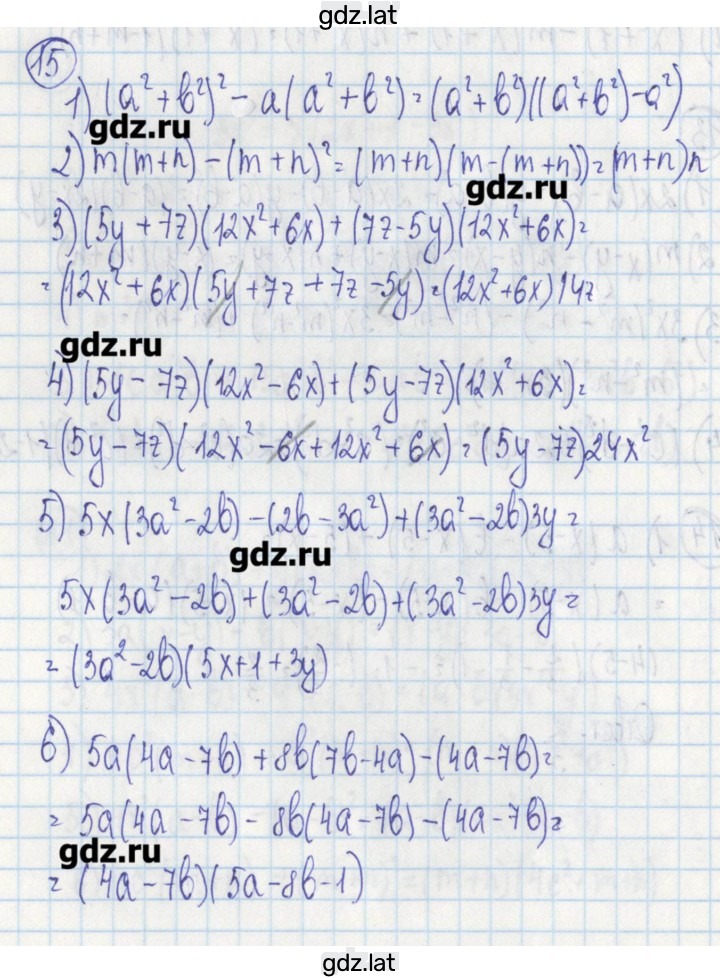 gdz.lat
15
1) (a² + b²)² - a(a² + b²) = (a² + b²)((a² + b²) - a²)
gdz.ru
2) m(m+n) - (m+n)² = (m+n)(m-(m+n)) = (m+n)n
gdz.ru
3) (5y + 7z)(12x² + 6x) + (7z - 5y)(12x² + 6x) =
= (12x² + 6x)(5y + 7z + 7z - 5y) = (12x² + 6x) 14z
gdz.ru
4) (5y - 7z)(12x² - 6x) + (5y - 7z)(12x² + 6x) =
= (5y - 7z)(12x² - 6x + 12x² + 6x) = (5y - 7z)24x²
5) 5x(3a² - 2b) - (2b - 3a²) + (3a² - 2b)3y =
gdz.ru
5x(3a² - 2b) + (3a² - 2b) + (3a² - 2b)3y =
= (3a² - 2b)(5x + 1 + 3y)
6) 5a(4a - 7b) + 8b(7b - 4a) - (4a - 7b) =
= 5a(4a - 7b) - 8b(4a - 7b) - (4a - 7b) =
gdz.ru
= (4a - 7b)(5a - 8b - 1)
gdz.lat